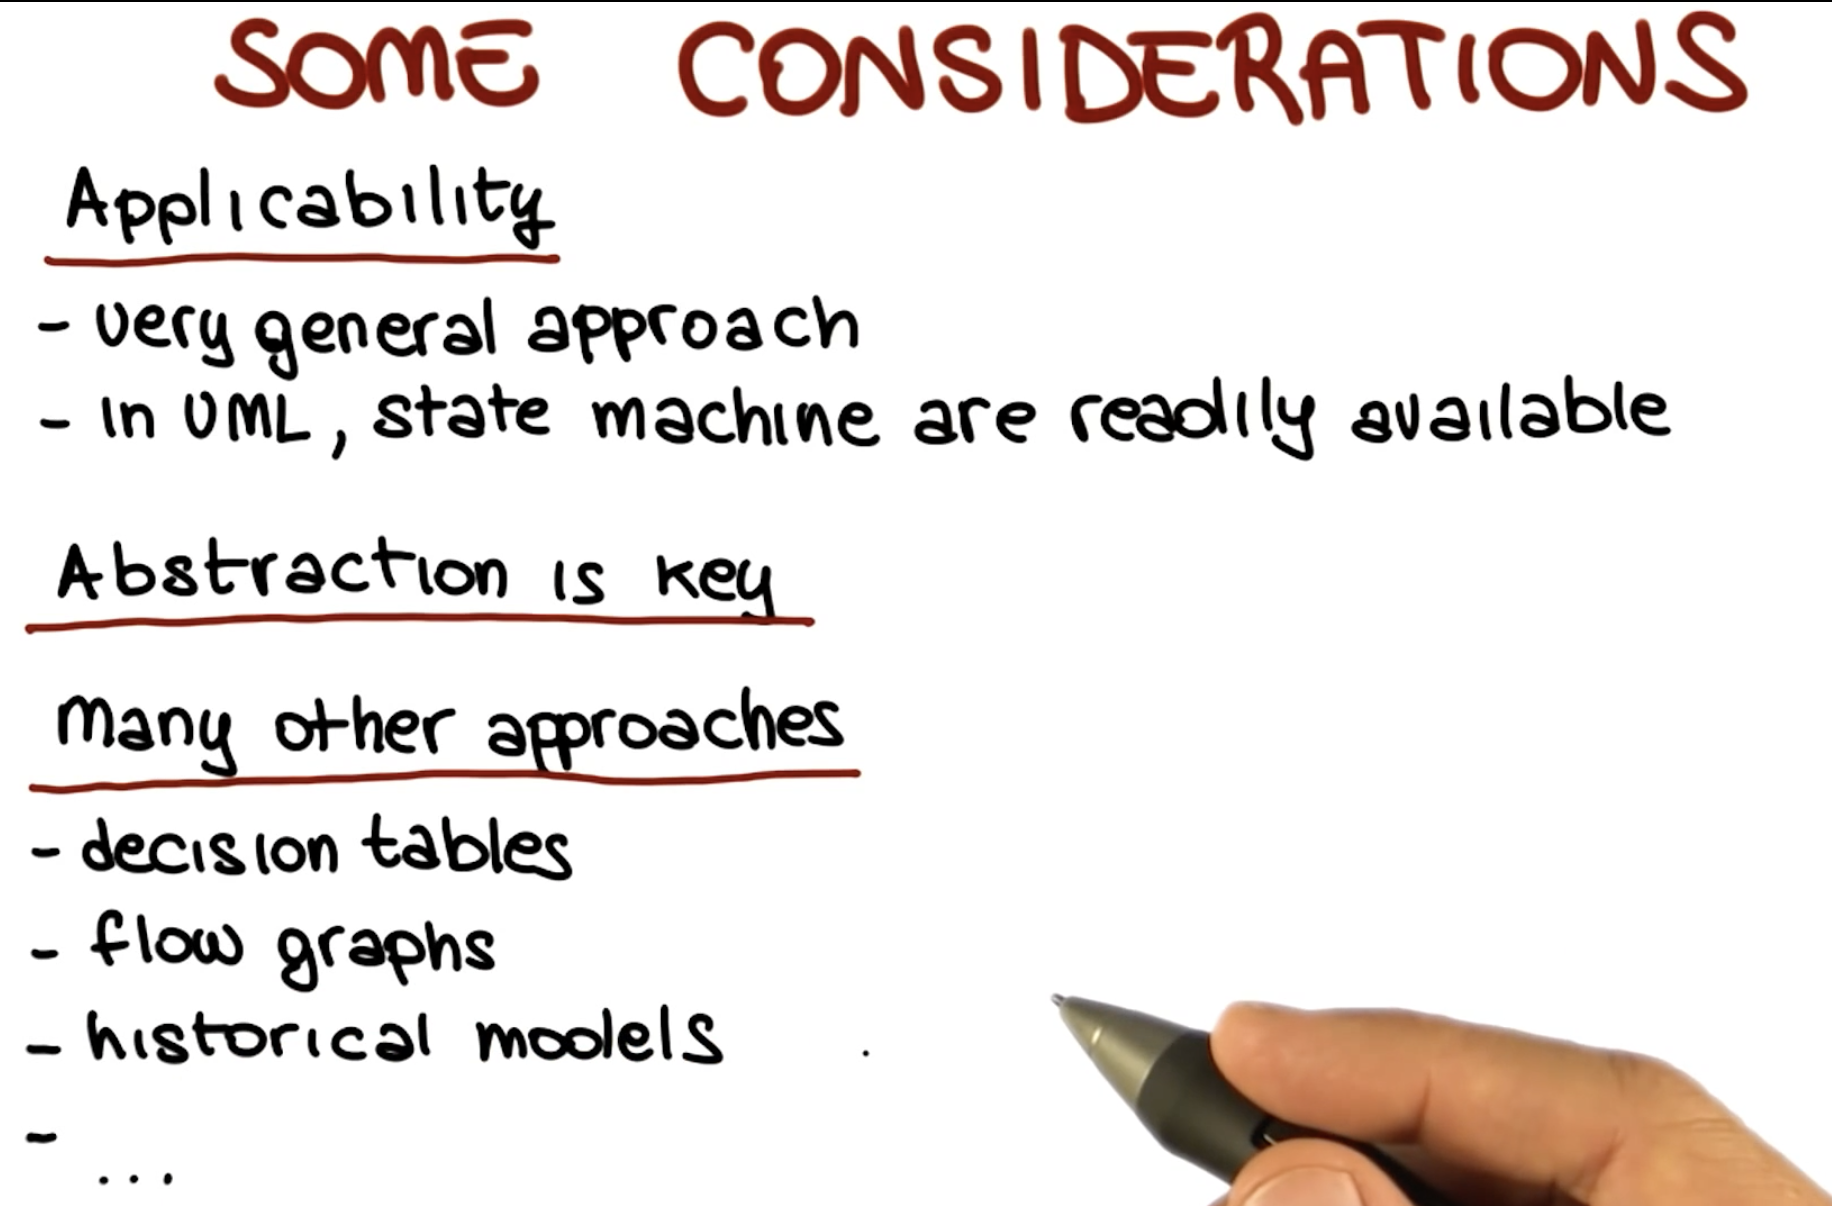 SOME CONSIDERATIONS
Applicability
- very general approach
- In UML, state machine are readily available
Abstraction is key
Many other approaches
- decision tables
- flow graphs
- historical models
- ...